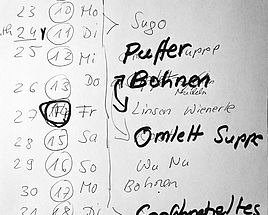 23 10 Mo Sugo
24 11 Di Puffer
25 12 Mi
Bohnen
26 13 Do Nudeln
27 14 Fr Linsen Wienerle
28 15 Sa Omlett Suppe
29 16 So Wa Nu
30 17 Mo Bohnen
18 Di